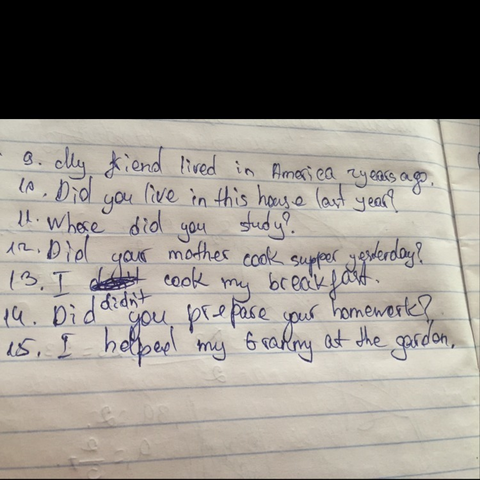 9. My friend lived in America 2 years ago.
10. Did you live in this house last year?
11. Where did you study?
12. Did your mother cook supper yesterday?
13. I didn't cook my breakfast.
14. Did you prepare your homework?
15. I helped my Granny at the garden.